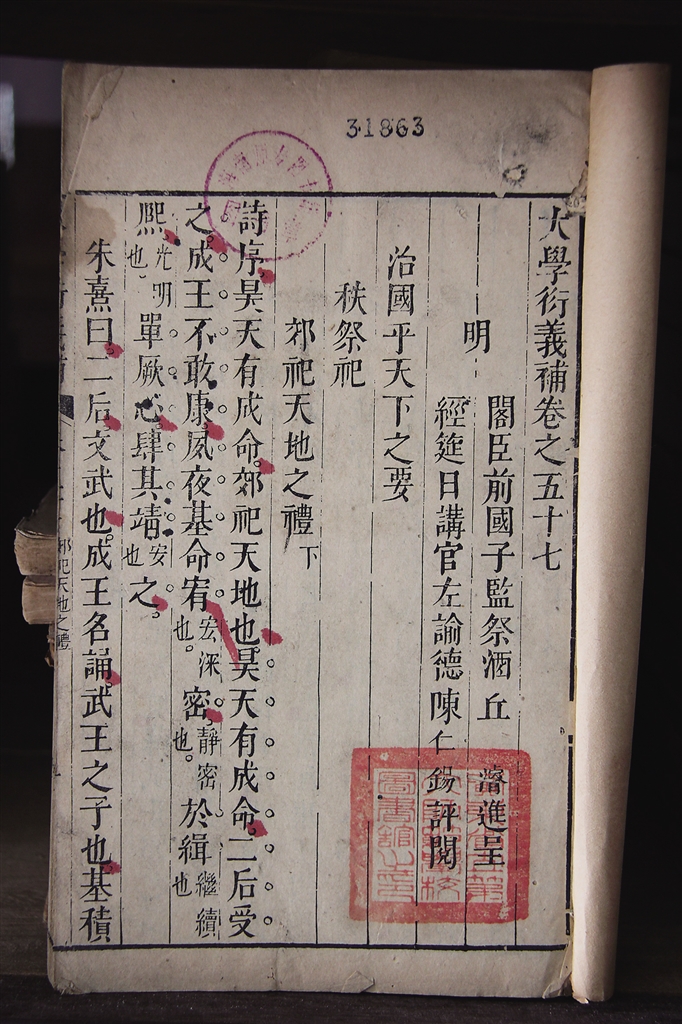 31863
大學衍義補卷之五十七
明
閣臣前國子監祭酒丘 濬進呈
經筵日講官左諭德陳仁錫評閱
治國平天下之要
秩祭祀
郊祀天地之禮下
詩序昊天有成命。郊祀天地也。昊天有成命。二后受
之。成王不敢康。夙夜基命宥宏深也。密。靜密也。於緝繼續也
熙。光明也。單厥心。肆其靖安也之。
朱熹曰。二后。文武也。成王名誦。武王之子也。基積
郊祀天地之禮